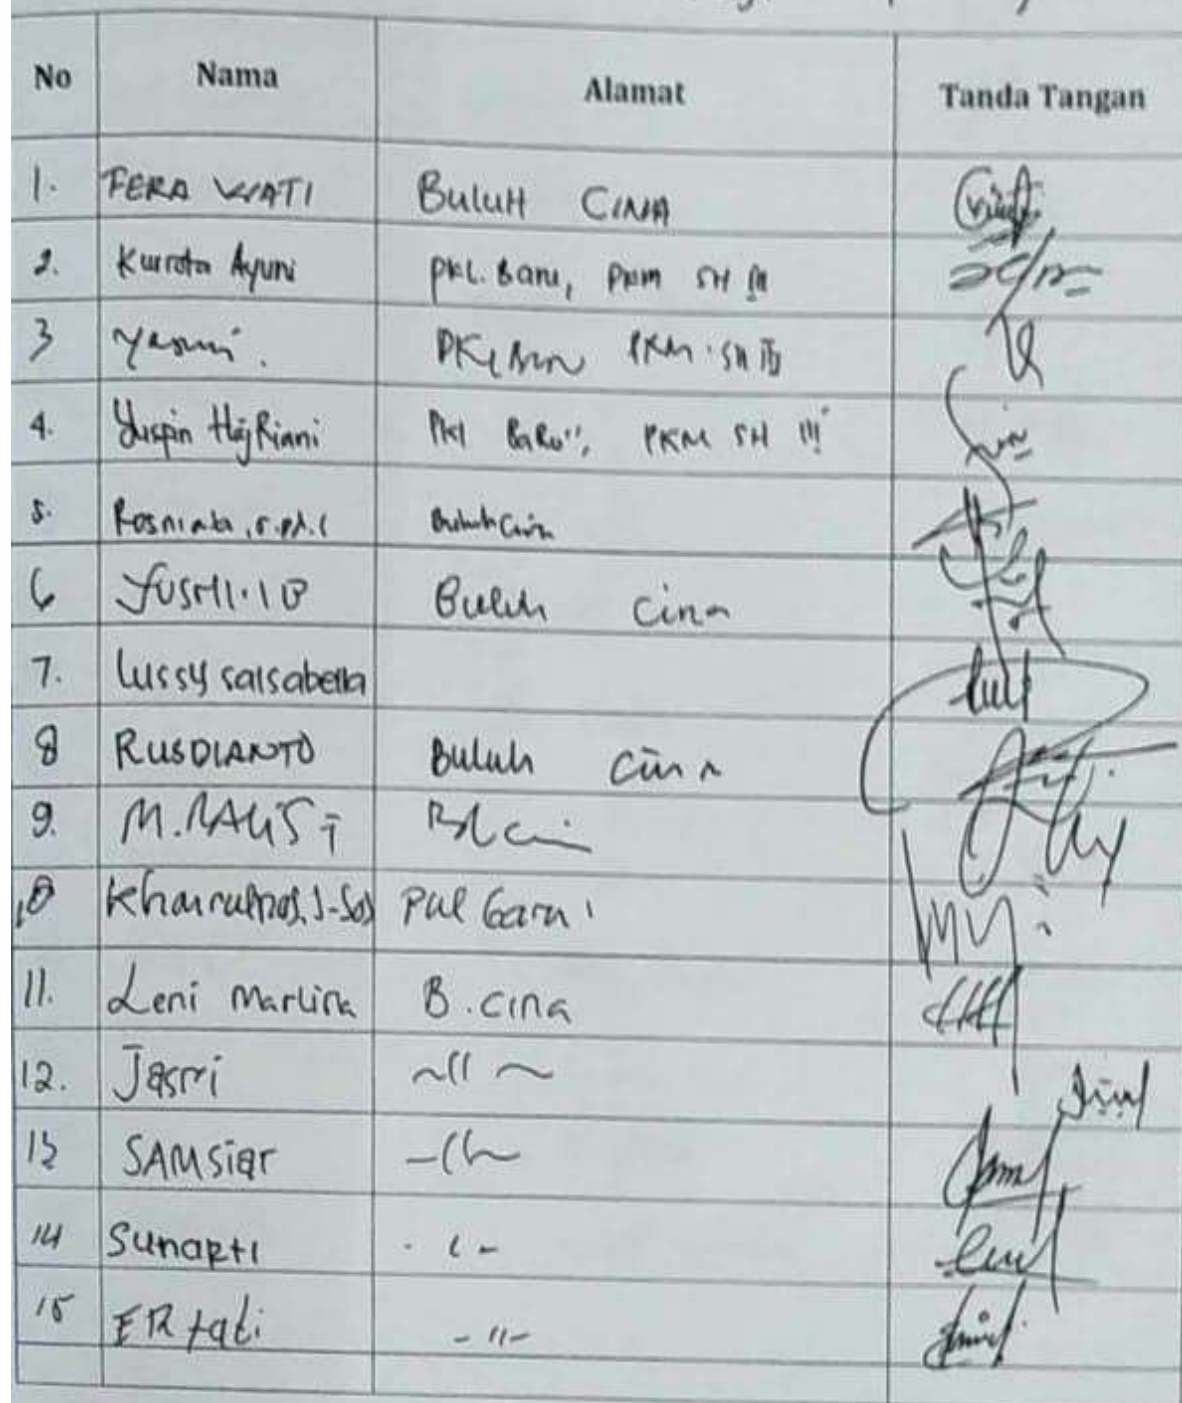 No Nama Alamat Tanda Tangan
1. FERA WATI BuluH CINA
2. Kurrota Ayuni PKL. Baru, PKM SH III
3 Yasmi. PKL Baru PKM. SH III
4. Yuspin Haj Riani PKl BaRu", PKM SH III
5. Rosniata, S.Pd.I Buluh Cina
6 Buluh Cina
7. lussy salsabella
8 RUSDIANTO Buluh Cina
9. M.
10 Pal
11. Leni Marlina B. cina
12. Jasri ~ 11 ~
13 SAMSiar - 11 -
14 Sunarti
15 ERtati - 11 -